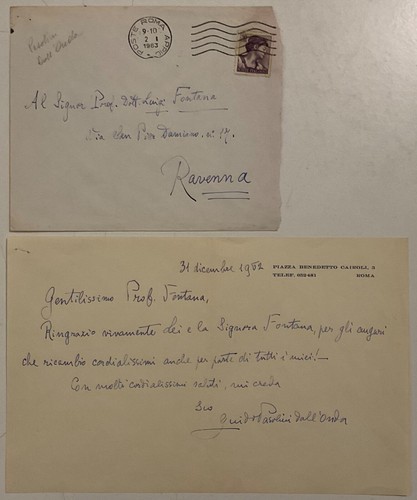 Pasolini
Dall'Onda
POSTE ROMA APPIO
9-10
2 1
1963
Al Signor Prof. Dott. Luigi Fontana
Via San Pier Damiano, n. 17.
Ravenna
31 dicembre 1962
PIAZZA BENEDETTO CAIROLI, 3
TELEF. 652-481
ROMA
Gentilissimo Prof. Fontana,
Ringrazio vivamente Lei e la Signora Fontana, per gli auguri
che ricambio cordialissimi anche per parte di tutti i miei! –
Con molti cordialissimi saluti, mi creda
Suo
Guido Pasolini dall'Onda